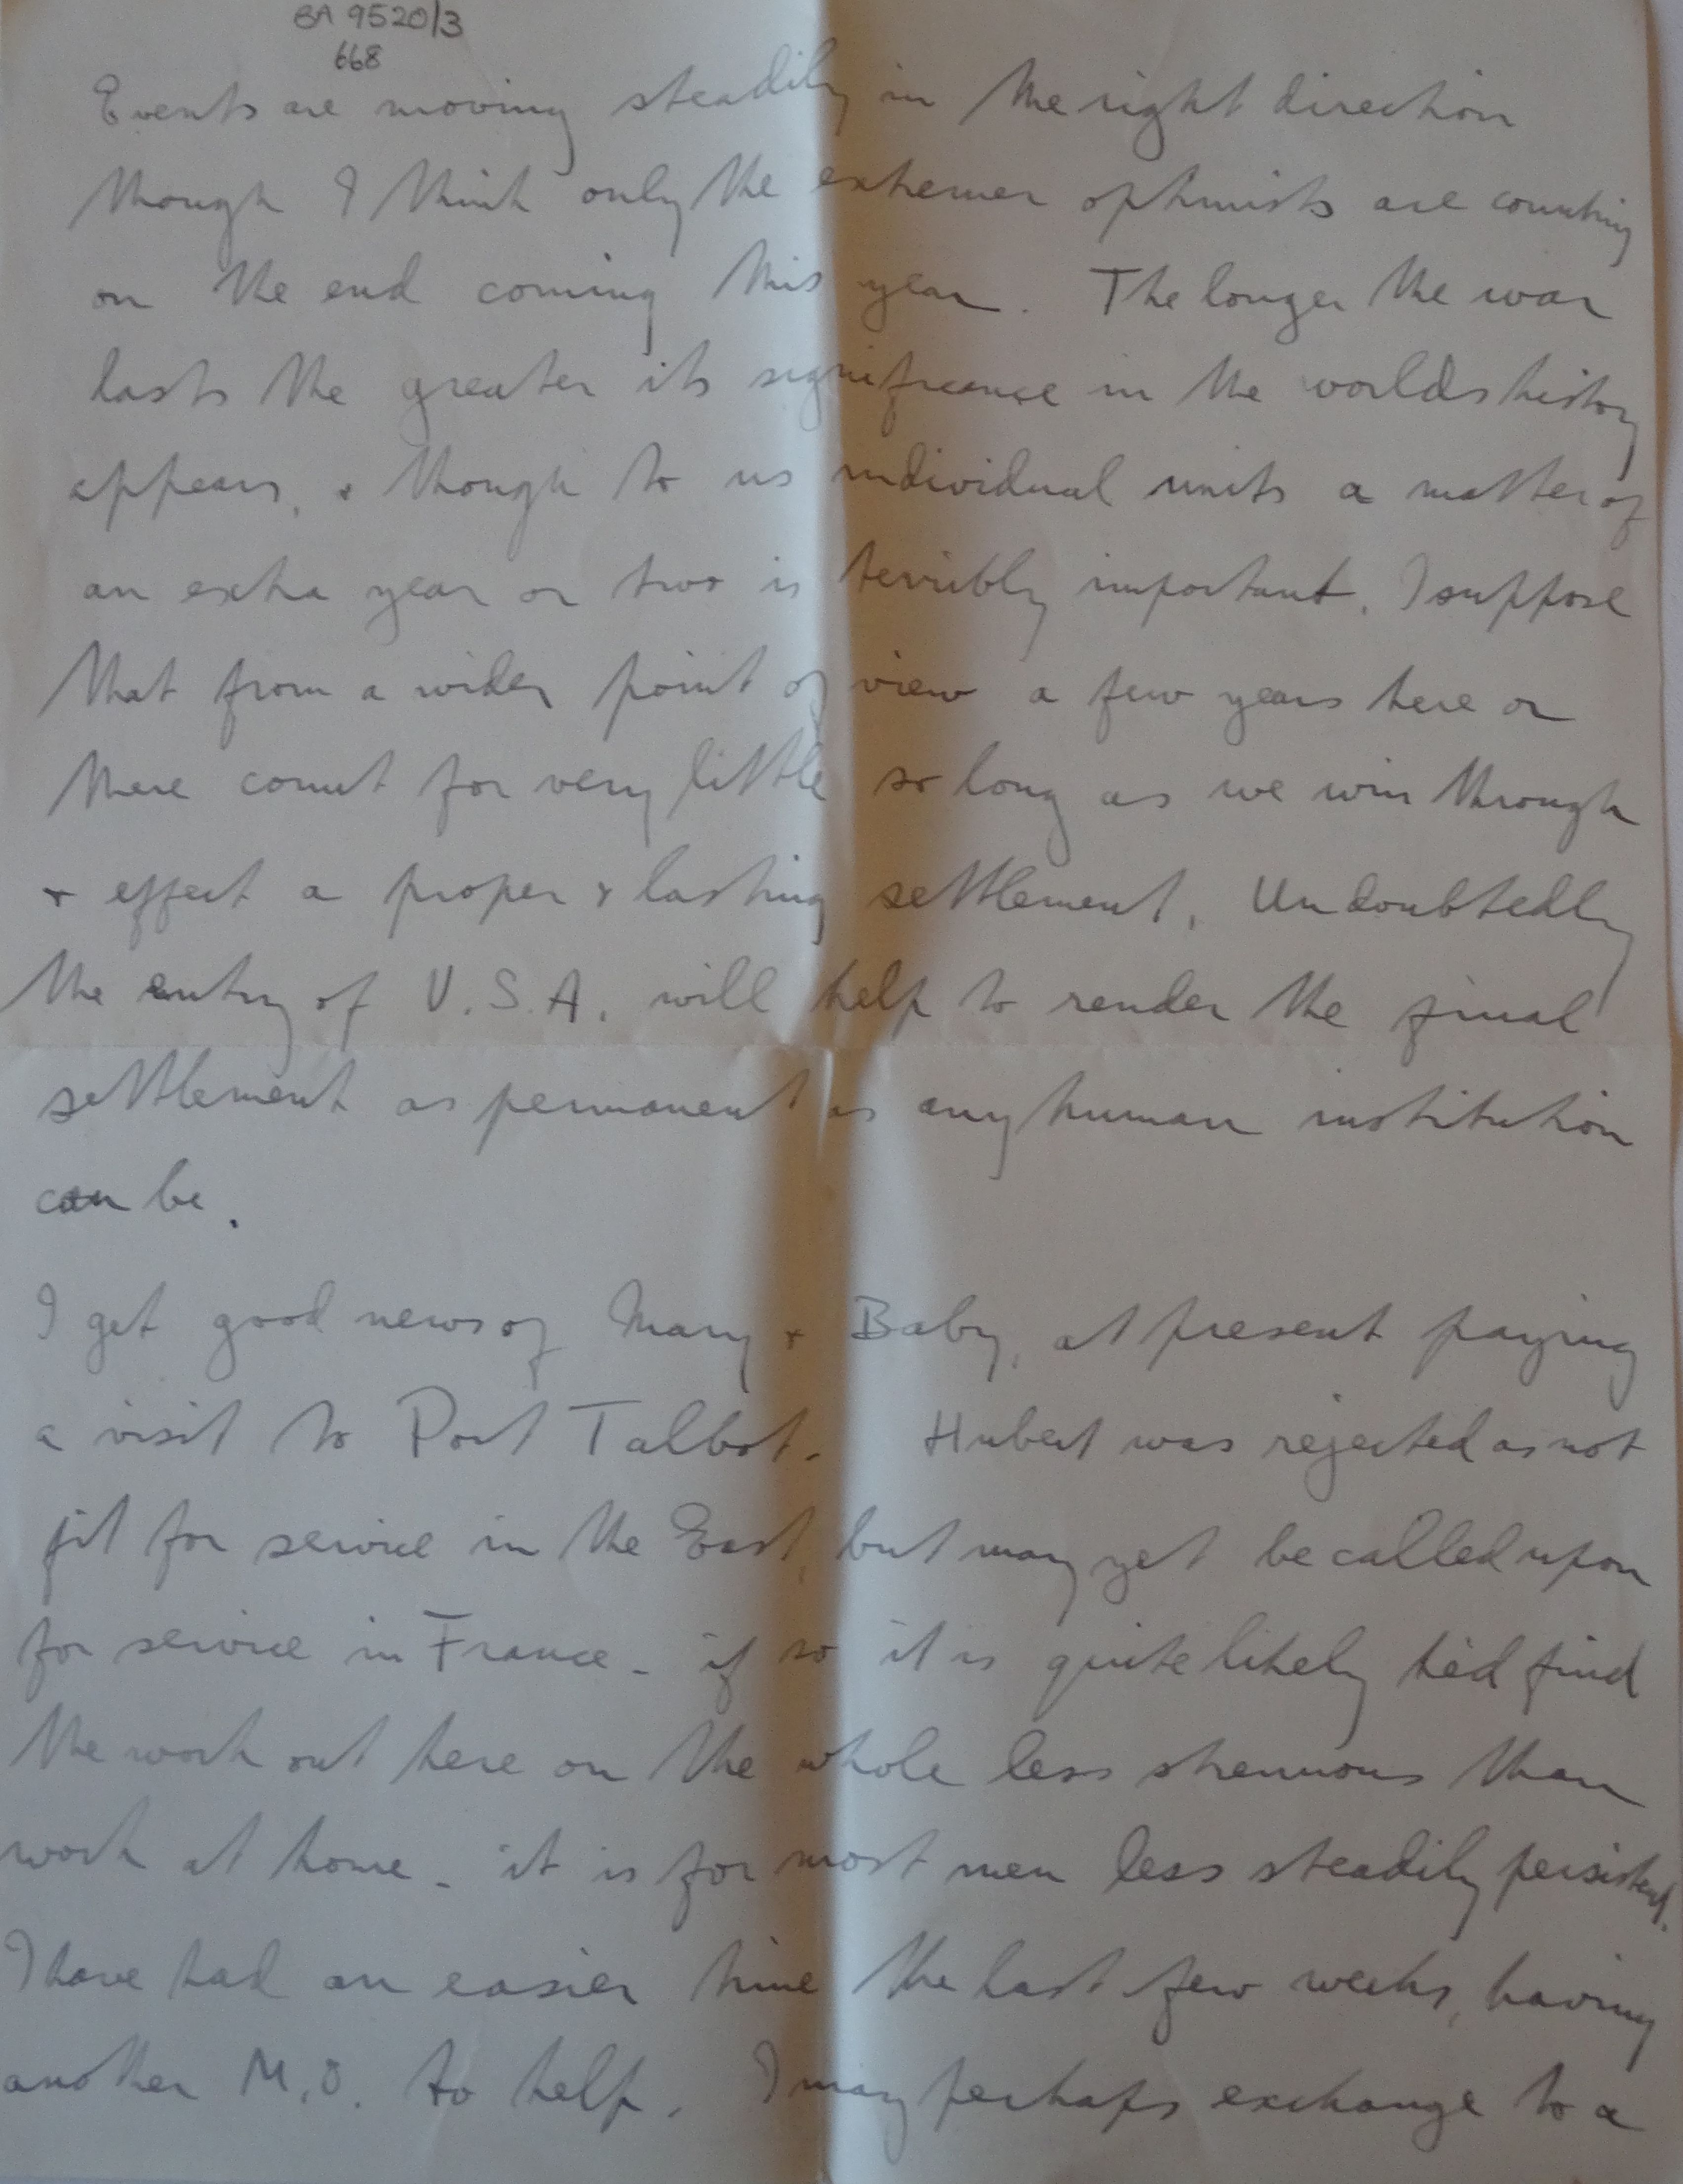 BA 9520/3
668
Events are moving steadily in the right direction
though I think only the extremer optimists are counting
on the end coming this year. The longer the war
lasts the greater its significance in the worlds history
appears, & though to us individual units a matter of
an extra year or two is terribly important. I suppose
that from a wider point of view a few years here or
there count for very little so long as we win through
& effect a proper & lasting settlement. Undoubtedly
the entry of U.S.A. will help to render the final
settlement as permanent as any human institution
can be.
I get good news of Mary & Baby, at present paying
a visit to Port Talbot. Hubert was rejected as not
fit for service in the East, but may yet be called upon
for service in France - if so it is quite likely he'd find
the work out here on the whole less strenuous than
work at home - it is for most men less steadily persistent.
I have had an easier time the last few weeks, having
another M.O. to help. I may perhaps exchange to a